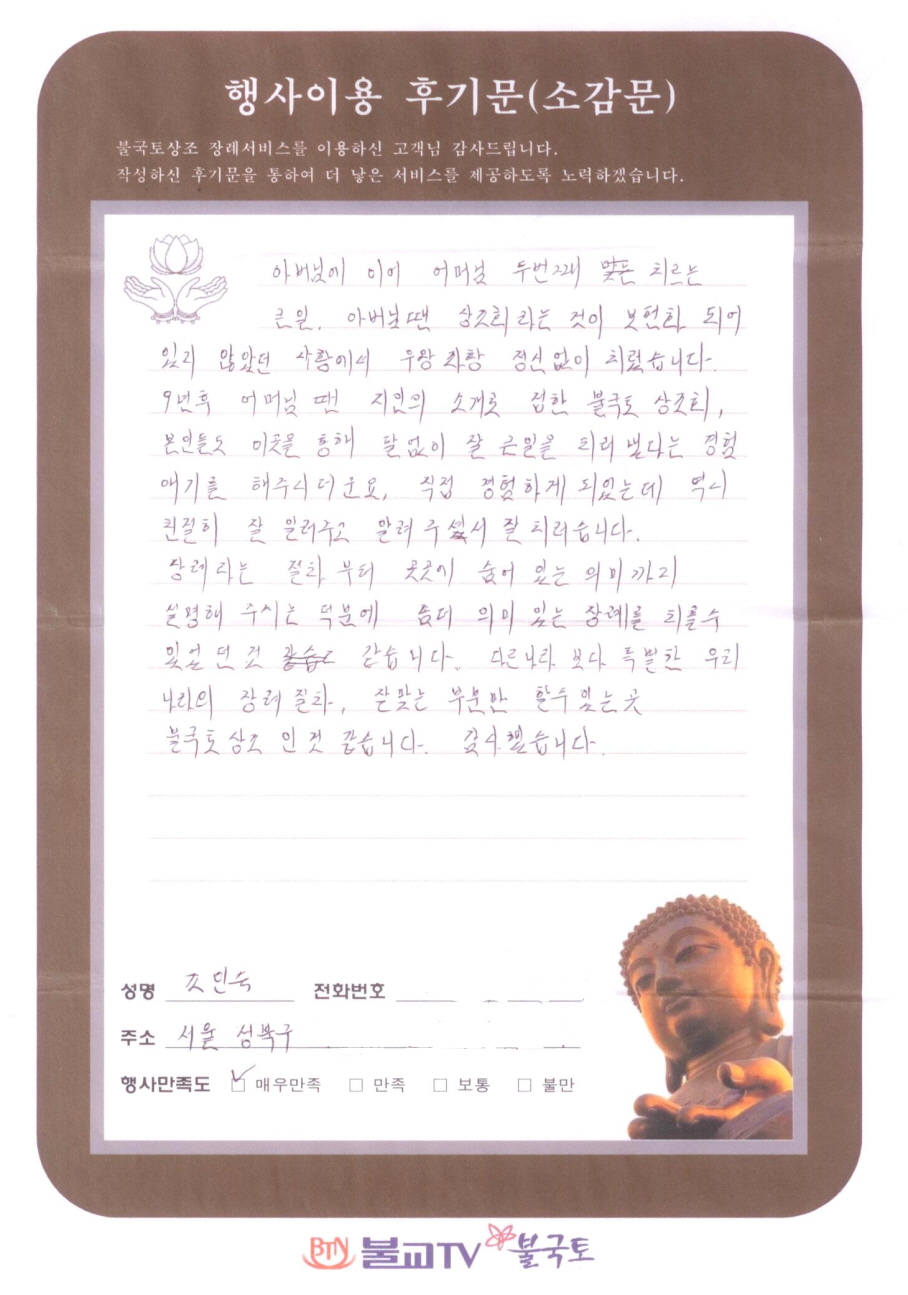 행사이용 후기문(소감문)
불국토상조 장례서비스를 이용하신 고객님 감사드립니다.
작성하신 후기문을 통하여 더 낳은 서비스를 제공하도록 노력하겠습니다.
아버님에 이어 어머님 두번째 맞는 치르는
큰일. 아버님땐 상조회라는 것이 보편화 되어
있지 않았던 상황에서 우왕좌왕 정신없이 치렀습니다.
9년후 어머님 땐 지인의 소개로 접한 불국토 상조회,
본인들도 이곳을 통해 탈없이 잘 큰일을 치러 냈다는 경험
얘기를 해주시더군요, 직접 경험하게 되었는데 역시
친절히 잘 일러주고 알려 주셔서 잘 치러습니다.
장례라는 절차 부터 곳곳에 숨어 있는 의미까지
설명해 주시는 덕분에 좀더 의미 있는 장례를 치를수
있었던 것 같습니다. 다른나라 보다 특별한 우리
나라의 장례 절차, 잘맞는 부분만 할수 있는 곳
불국토 상조 인 것 같습니다. 감사했습니다.
성명 조인숙 전화번호
주소 서울 성북구
행사만족도 ☑ 매우만족 □ 만족 □ 보통 □ 불만
BTN 불교TV 불국토